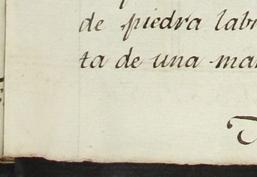 de piedra labr
ta de una mar